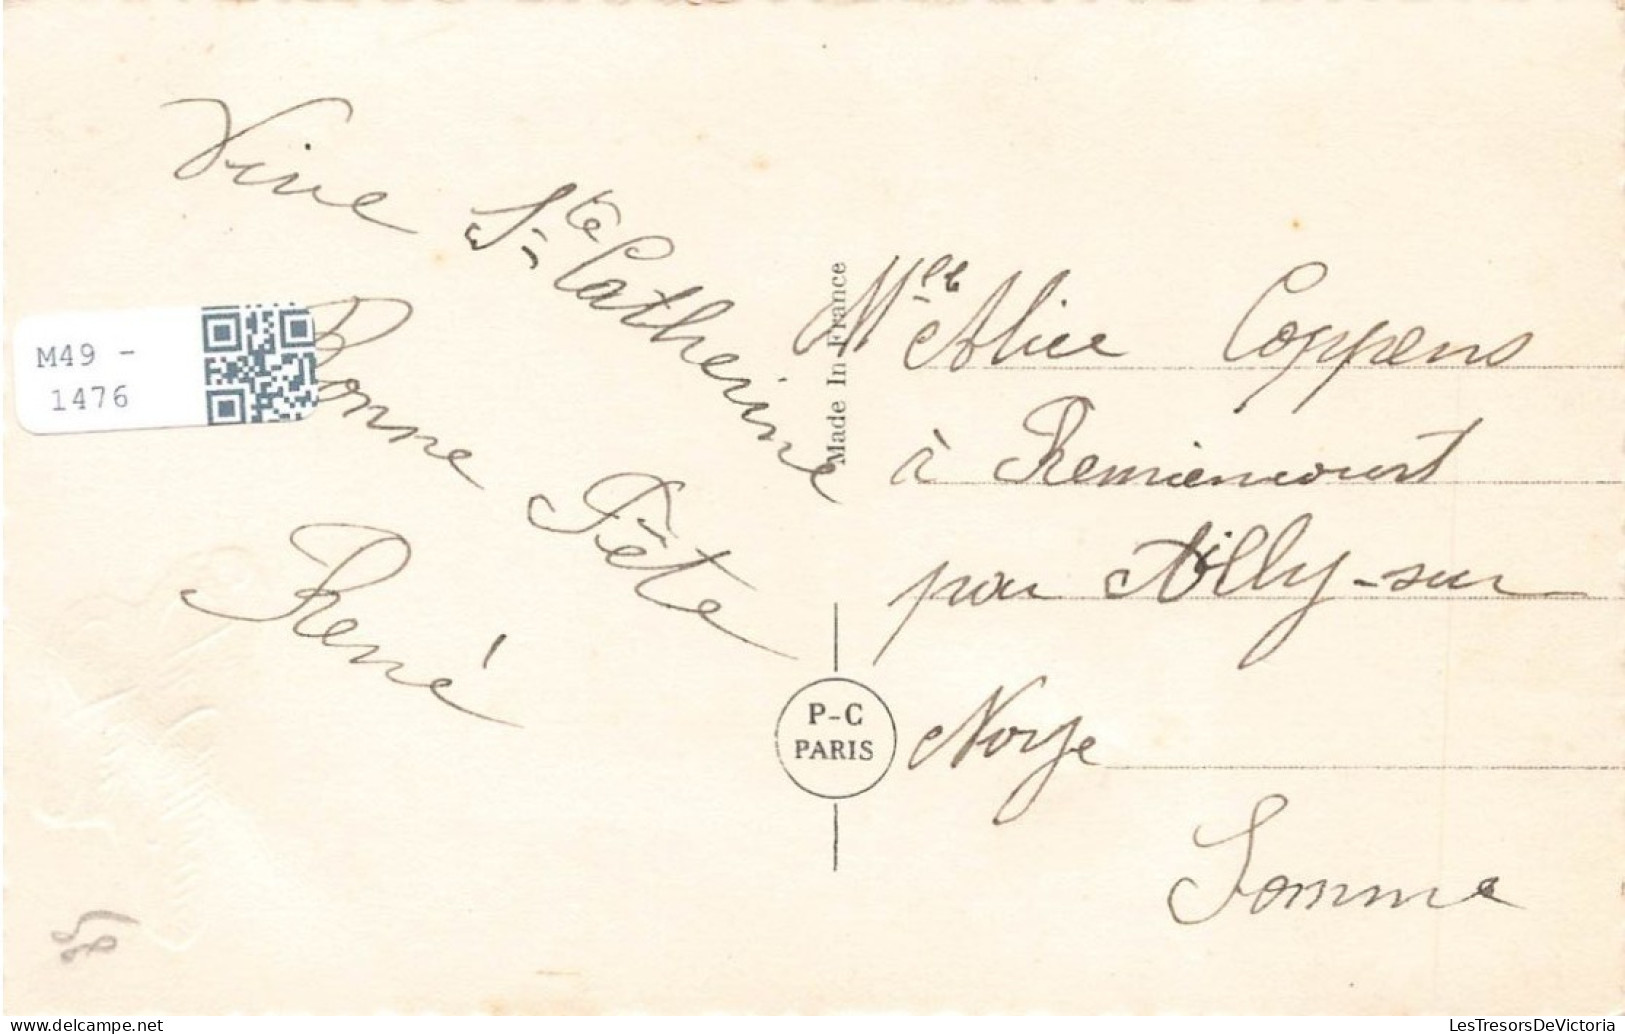 Vive Ste Catherine
Bonne Fête
René
M49 -
1476
Made In France
P-C
PARIS
Mlle Alice Coppens
à Remiencourt
par Ailly-sur
Noye
Somme
LesTresorsDeVictoria
www.delcampe.net